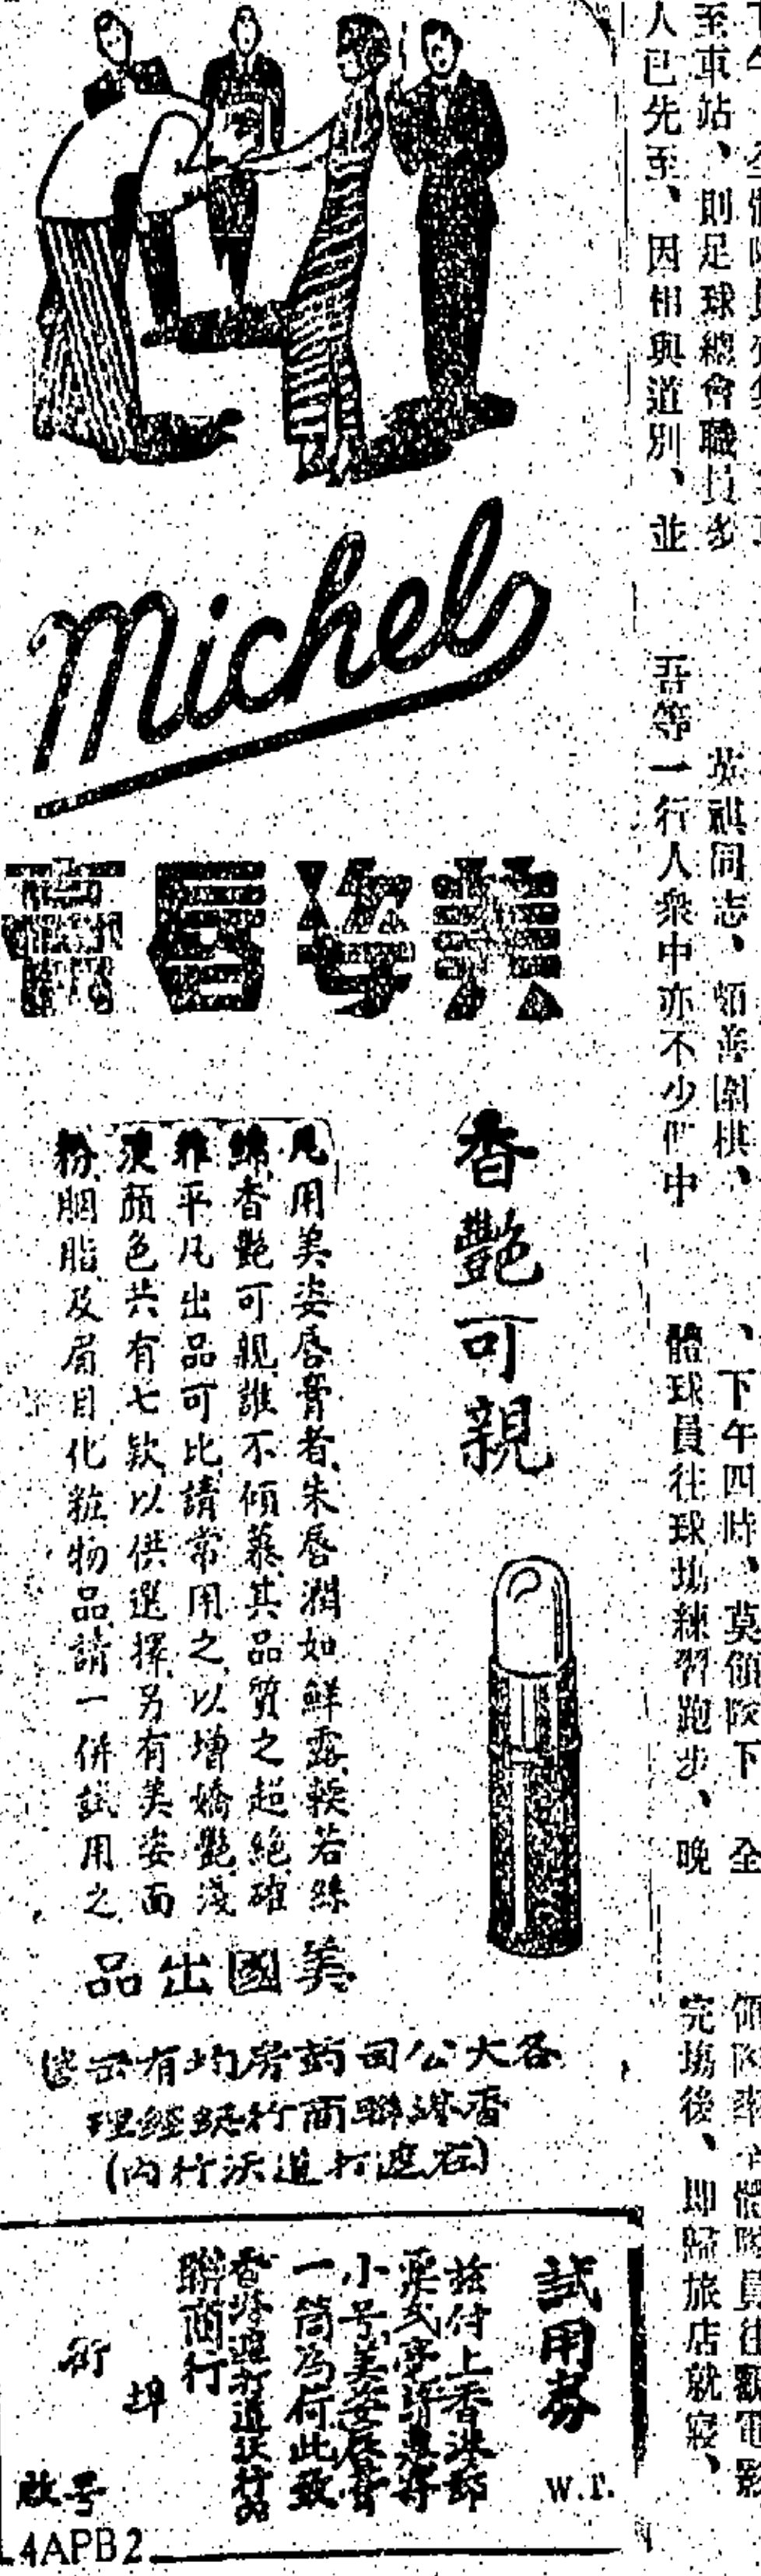 Michel
美姿唇膏
香艷可親
凡用美姿唇膏者、朱唇潤如鮮露、軟若絲
綿、香艷可親、誰不傾慕、其品質之超絕、確
非平凡出品可比、請常用之、以增嬌艷、淺
深顏色共有七欵、以供選擇、另有美姿面
粉、胭脂、及眉目化粧物品、請一併試用之、
美國出品
各大公司葯房均有出售
香港聯商行經理
(在遮打道沃行內)
試用券
W.T.
茲付上香港郵
小号美姿唇膏
一筒為何此致
香港遮打道沃行內
聯商行
埠
街
号
啟
4APB2
至車站、則足球總會職員多
人已先至、因相與道別、並
英祺同志、頗善圍棋、
吾等一行人衆中亦不少個中
、下午四時、莫領隊下 全
體球員往球塲練習跑步、晚
領隊率全體隊員往觀電影
完塲後、即歸旅店就寢、